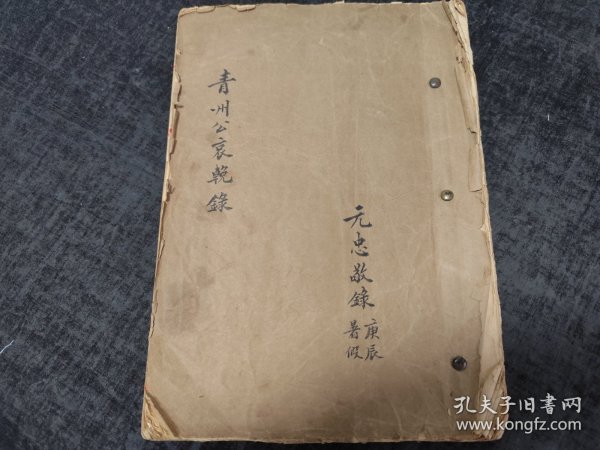 青州公哀輓錄
元忠敬錄
庚辰
暑假
孔夫子旧書网
www.kongfz.com